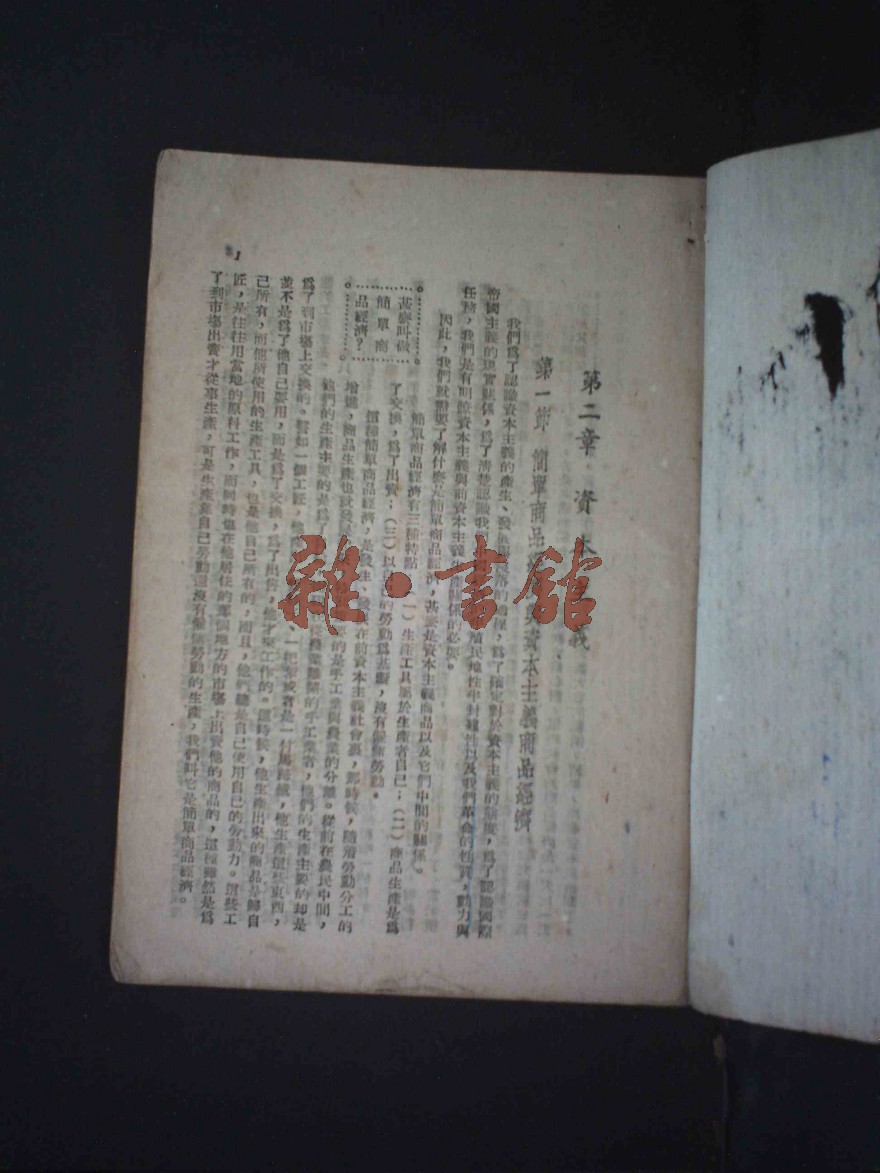 第二章 資本主義
第一節 簡單商品經濟與資本主義商品經濟
我們爲了認識資本主義的產生、發展
帝國主義的現實關係,爲了清楚認識我
殖民地性半封建性以及我們革命的性質,動力與
任務,我們是有明瞭資本主義與前資本主義
關係的必要。
因此,我們就需要了解什麽是簡單商品經濟,甚麽是資本主義商品以及它們中間的關係。
甚麽叫做
簡單商
品經濟?
簡單商品經濟有三種特點:(一)生產工具屬於生產者自己;(二)商品生產是爲
了交換,爲了出賣;(三)以
的勞動爲基礎,沒有僱傭勞動。
這種簡單商品經濟,是發生、發展在前資本主義社會裏,那時候,隨着勞動分工的
增進,商品生產也就發
的是手工業與農業的分離。從前在農民中間,
他們的生產主要的是爲了
從農業離開的手工業者,他們的生產主要的却是
爲了到市場上交換的。譬如一個工匠,他
一把犂或者是一付馬蹄鐵,他生產這些東西,
並不是爲了他自己要用,而是爲了交換,爲了出售,他才來工作的。這時候,他生產出來的商品是歸自
己所有,而他所使用的生產工具,也是他自己所有的,而且,他們總是自己使用自己的勞動力。這些工
匠,是往往用當地的原料工作,而同時也在他居住的那個地方的市場上出賣他的商品的,這種雖然是爲
了到市場出賣才從事生產,可是生產靠自己勞動還沒有僱傭勞動的生產,我們叫它是簡單商品經濟。
1
雜·書館